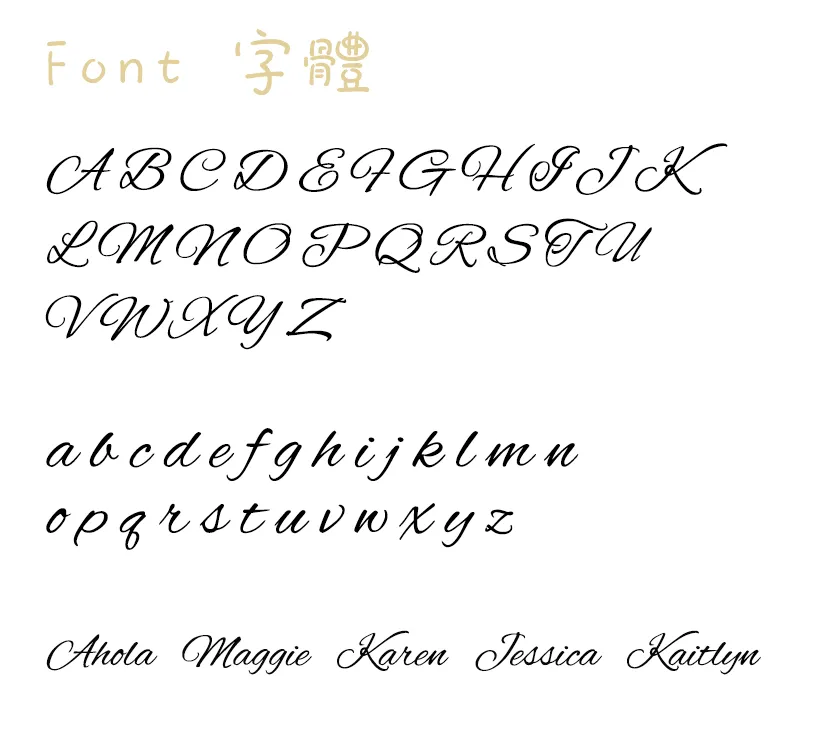 Font 字體
A B C D E F G H I J K
L M N O P Q R S T U
V W X Y Z
a b c d e f g h i j k l m n
o p q r s t u v w x y z
Ahola Maggie Karen Jessica Kaitlyn